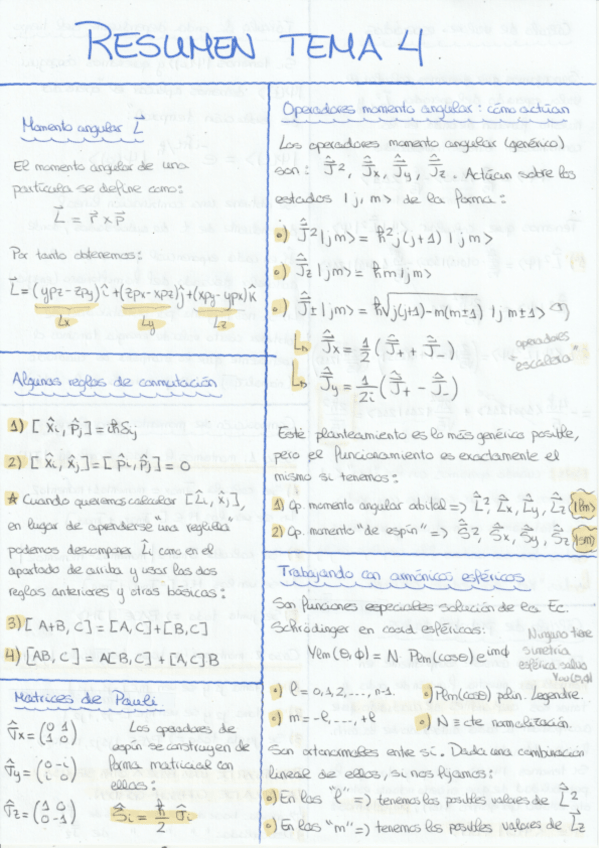 RESUMEN TEMA 4
Momento angular L⃗
El momento angular de una
partícula se define como:
L⃗ = r⃗ × p⃗
Por tanto obtenemos:
L⃗ = (ypz - zpy) î + (zpx - xpz) ĵ + (xpy - ypx) k̂
Lx Ly Lz
Algunas reglas de conmutación
1) [x̂i, p̂j] = iħδij
2) [x̂i, x̂j] = [p̂i, p̂j] = 0
★ Cuando queremos calcular [L̂i, x̂j],
en lugar de aprenderse "una reglilla"
podemos descomponer L̂i como en el
apartado de arriba y usar las dos
reglas anteriores y otras básicas:
3) [A+B, C] = [A, C] + [B, C]
4) [AB, C] = A[B, C] + [A, C]B
Matrices de Pauli
σ̂x = (0 1
1 0)
σ̂y = (0 -i
i 0)
σ̂z = (1 0
0 -1)
Los operadores de
espín se construyen de
forma matricial con
ellas:
Ŝi = ħ/2 σ̂i
Operadores momento angular: cómo actúan
Los operadores momento angular (genérico)
son: Ĵ², Ĵx, Ĵy, Ĵz. Actúan sobre los
estados |j, m> de la forma:
•) Ĵ²|jm> = ħ²j(j+1)|jm>
•) Ĵz|jm> = ħm|jm>
•) Ĵ±|jm> = ħ√j(j+1)-m(m±1) |j m±1>
↳ Ĵx = 1/2 (Ĵ+ + Ĵ-)
↳ Ĵy = 1/2i (Ĵ+ - Ĵ-)
operadores
"escalera"
Este planteamiento es lo más genérico posible,
pero el funcionamiento es exactamente el
mismo si tenemos:
1) Op. momento angular orbital => L̂², L̂x, L̂y, L̂z |lm>
2) Op. momento "de espín" => Ŝ², Ŝx, Ŝy, Ŝz |sm>
Trabajando con armónicos esféricos
Son funciones especiales solución de la Ec.
Schrödinger en coord esféricas:
Yℓm(θ,ϕ) = N Pℓm(cosθ) e^imϕ
Ninguno tiene
simetría
esférica salvo
Y00(θ,ϕ)
•) ℓ = 0, 1, 2, ..., n-1. •) Pℓm(cosθ) polin. Legendre.
•) m = -ℓ, ..., +ℓ •) N ≡ cte normalización.
Son ortonormales entre sí. Dada una combinación
lineal de ellos, si nos fijamos:
•) En las "ℓ" => tenemos los posibles valores de L̂²
•) En las "m" => tenemos los posibles valores de L̂z